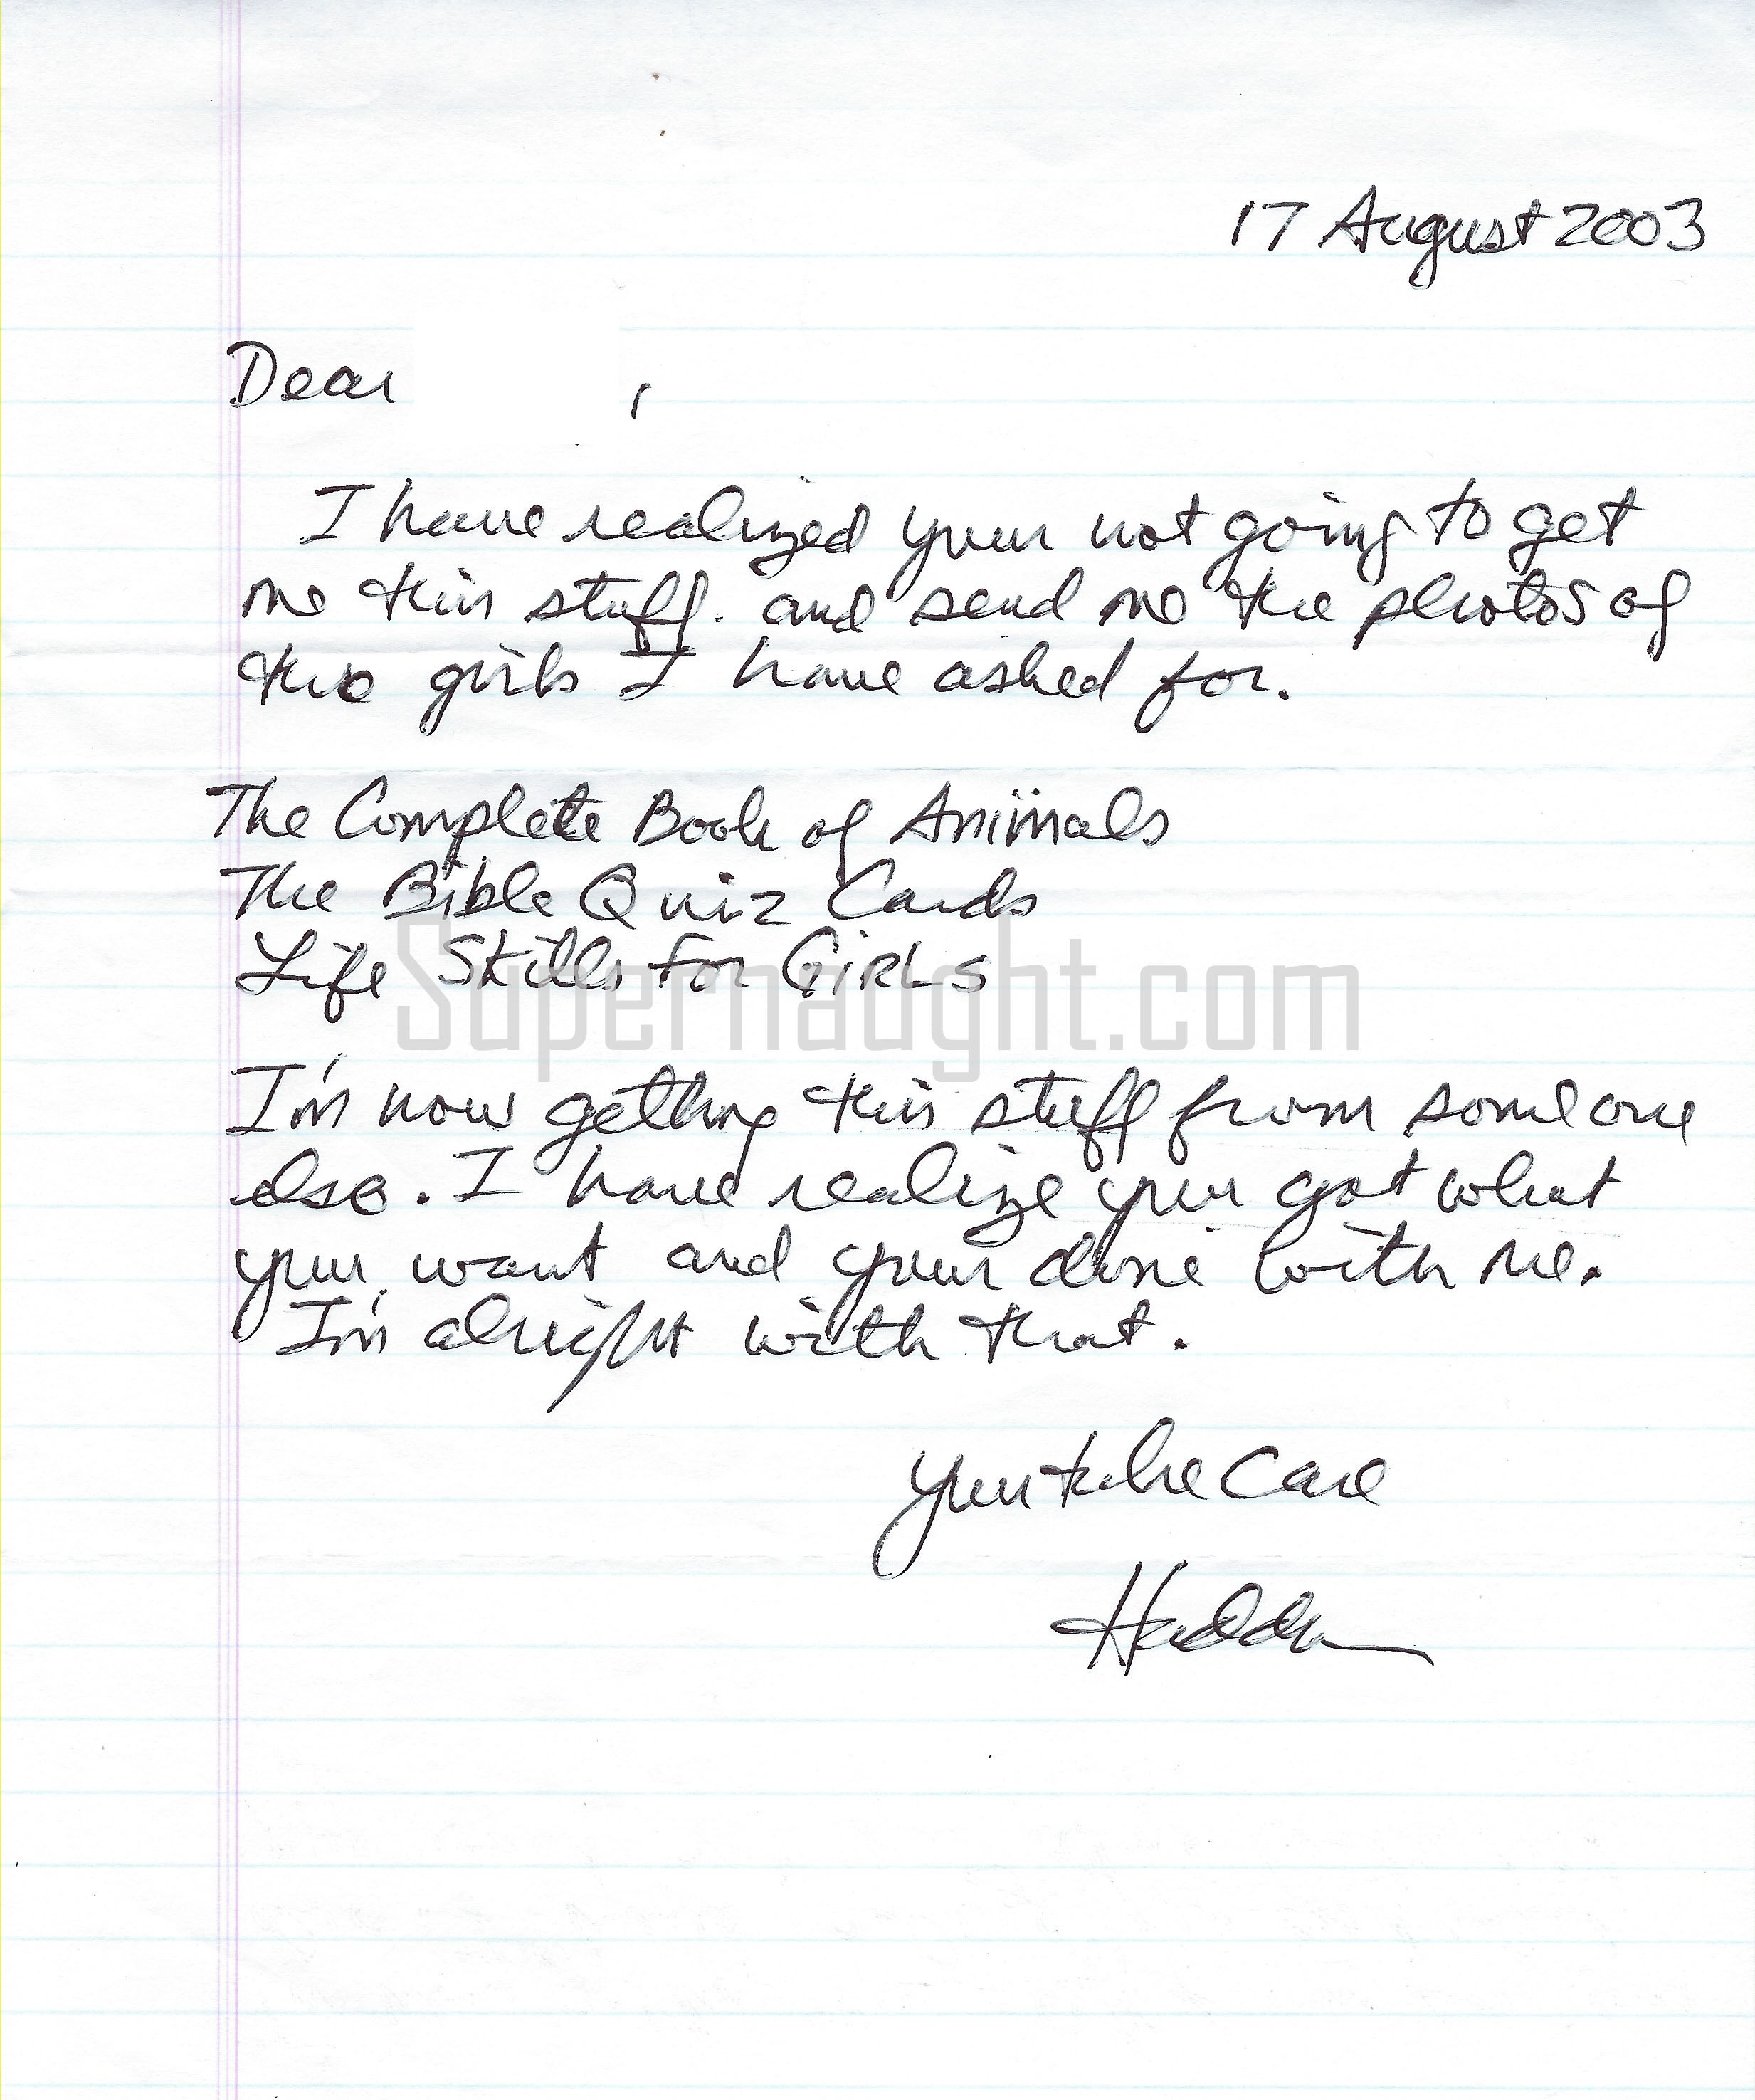 17 August 2003
Dear ,
I have realized your not going to get
me this stuff. and send me the photos of
the girls I have asked for.
The Complete Book of Animals
The Bible Quiz Cards
Life Skills For GiRLs
Supernaught.com
I'm now getting this stuff from someone
else. I have realize your got what
you want and your done with me.
I'm alright with that.
You take Care